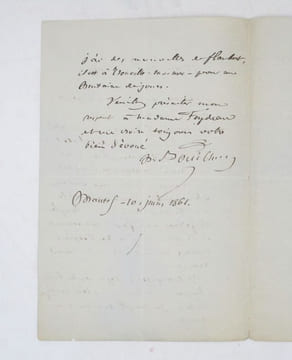 j'ai des nouvelles de flaubert,
il est à Trouville-sur-mer - pour une
trentaine de jours.
Veuillez présenter mon
respect à madame Feydeau
et me croire toujours votre
bien dévoué
L. Bouilhet
Mantes - 10 juin 1861.